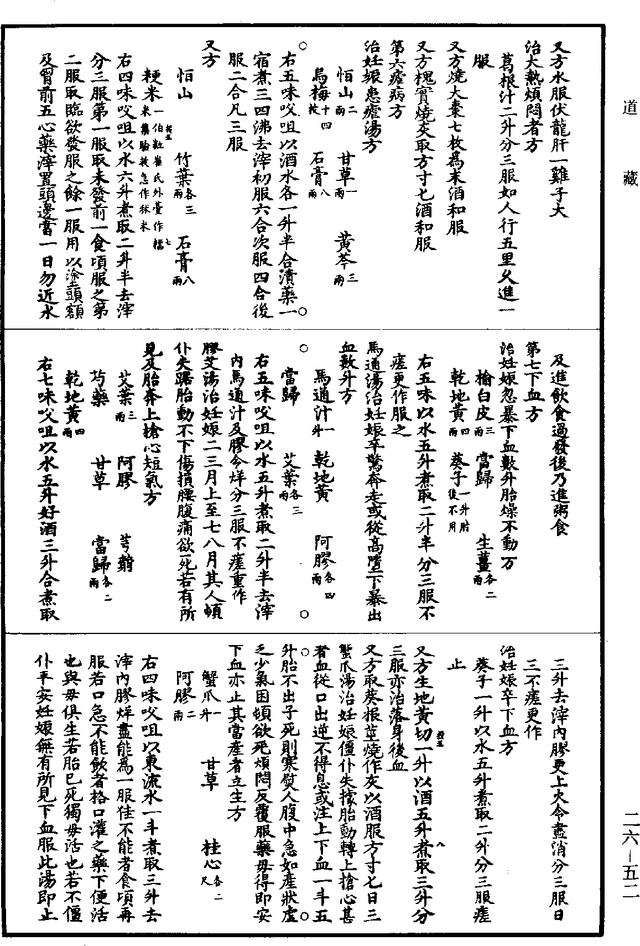 道藏
又方水服伏龍肝一雞子大
治大熱煩悶者方
葛根汁二升分三服如人行五里久進一
服
又方燒大棗七枚爲末酒和服
又方槐實燒灰取方寸七酒和服
第六瘧病方
治妊娠患瘧湯方
恒山二兩 甘草一兩 黃芩三兩
烏梅十四枚 石膏八兩
右五味㕮咀以酒水各一升半合漬藥一
宿煮三四沸去滓初服六合次服四合後
服二合凡三服
又方
恒山 竹葉各三兩 石膏八兩
粳米一百粒崔氏外臺作糯米集驗救急作秫米
右四味㕮咀以水六升煮取二升半去滓
分三服第一服取未發前一食頃服之第
二服取臨欲發服之餘一服用以塗頭額
及胷前五心藥滓置頭邊當一日勿近水
及進飲食過發後乃進粥食
第七下血方
治妊娠忽暴下血數升胎燥不動方
榆白皮三兩 當歸 生薑各二兩
乾地黃四兩 葵子一升肘後不用
右五味以水五升煮取二升半分三服不
瘥更作服之
馬通湯治妊娠卒驚奔走或從高墮下暴出
血數升方
馬通汁一升 乾地黃 阿膠各四兩
當歸 艾葉各三兩
右五味㕮咀以水五升煮取二升半去滓
內馬通汁及膠令烊分三服不瘥重作
膠艾湯治妊娠二三月上至七八月其人頓
仆失踞胎動不下傷損腰腹痛欲死若有所
見及胎奔上搶心短氣方
艾葉三兩 阿膠 芎藭
芍藥 甘草 當歸各二兩
乾地黃四兩
右七味㕮咀以水五升好酒三升合煮取
三升去滓內膠更上火令盡消分三服日
三不瘥更作
治妊娠卒下血方
葵子一升以水五升煮取二升分三服瘥
止
又方生地黃切一升以酒五升煮取三升分
三服亦治落身後血
又方取葵根莖燒作灰以酒服方寸七日三
蟹爪湯治妊娠僵仆失據胎動轉上搶心甚
者血從口出逆不得息或注上下血一斗五
升胎不出子死則寒熨人腹中急如產狀虛
乏少氣困頓欲死煩悶反覆服藥母得即安
下血亦止其當產者立生方
蟹爪一升 甘草 桂心各二尺
阿膠二兩
右四味㕮咀以東流水一斗煮取三升去
滓內膠烊盡能爲一服佳不能者食頃再
服若口急不能飲者格口灌之藥下便活
也與母俱生若胎已死獨母活也若不僵
仆平安妊娠無有所見下血服此湯即止
二六—五二